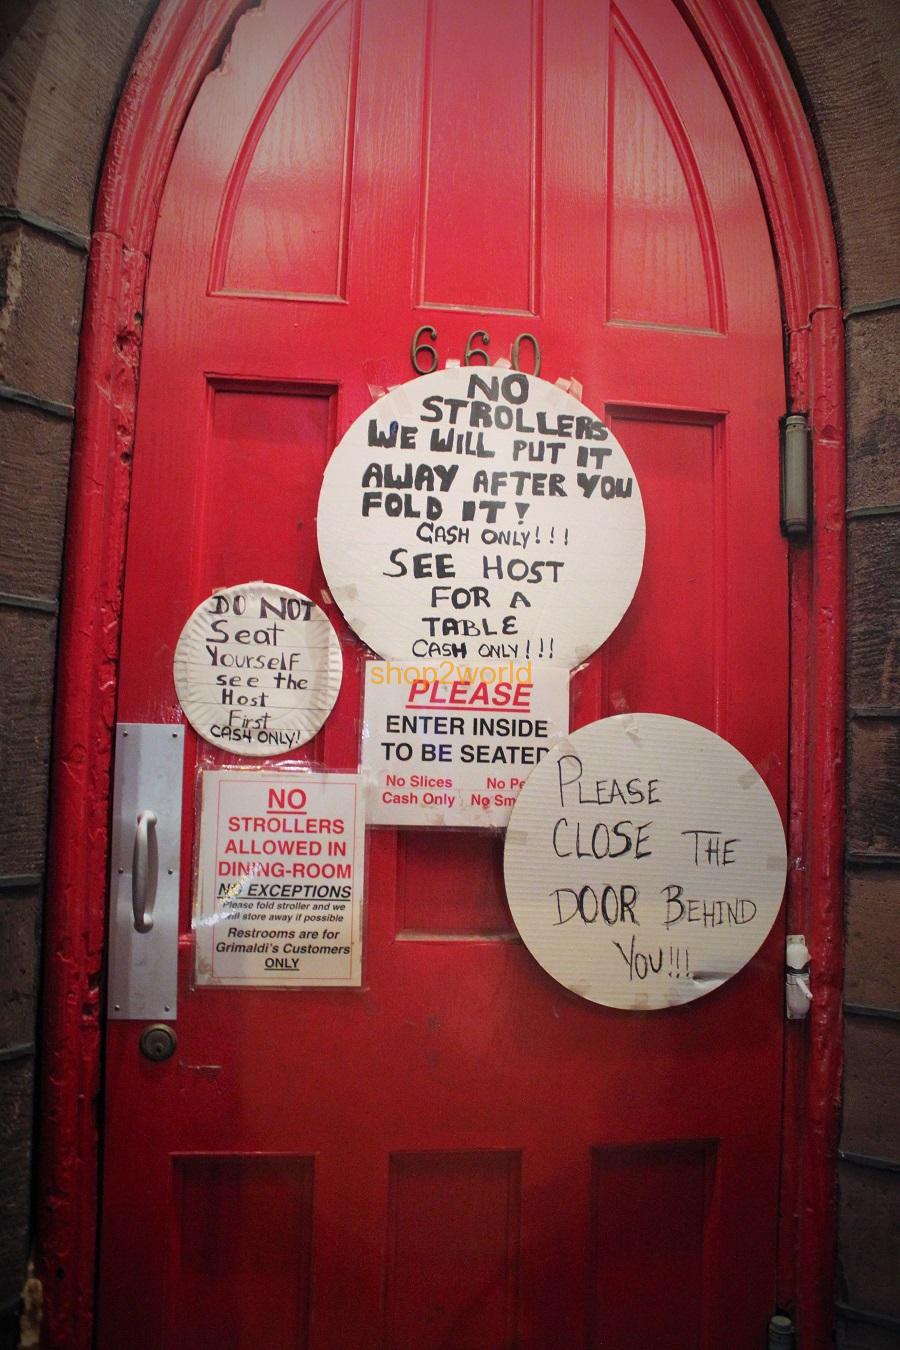 660
NO
STROLLERS
WE WILL PUT IT
AWAY AFTER YOU
FOLD IT!
CASH ONLY!!!
SEE HOST
FOR A
TABLE
CASH ONLY!!!
DO NOT
Seat
Yourself
see the
Host
First
CASH ONLY!
shop2world
PLEASE
ENTER INSIDE
TO BE SEATED
No Slices
Cash Only
NO
STROLLERS
ALLOWED IN
DINING-ROOM
NO EXCEPTIONS
Please fold stroller and we
will store away if possible
Restrooms are for
Grimaldi's Customers
ONLY
PLEASE
CLOSE THE
DOOR BEHIND
YOU!!!